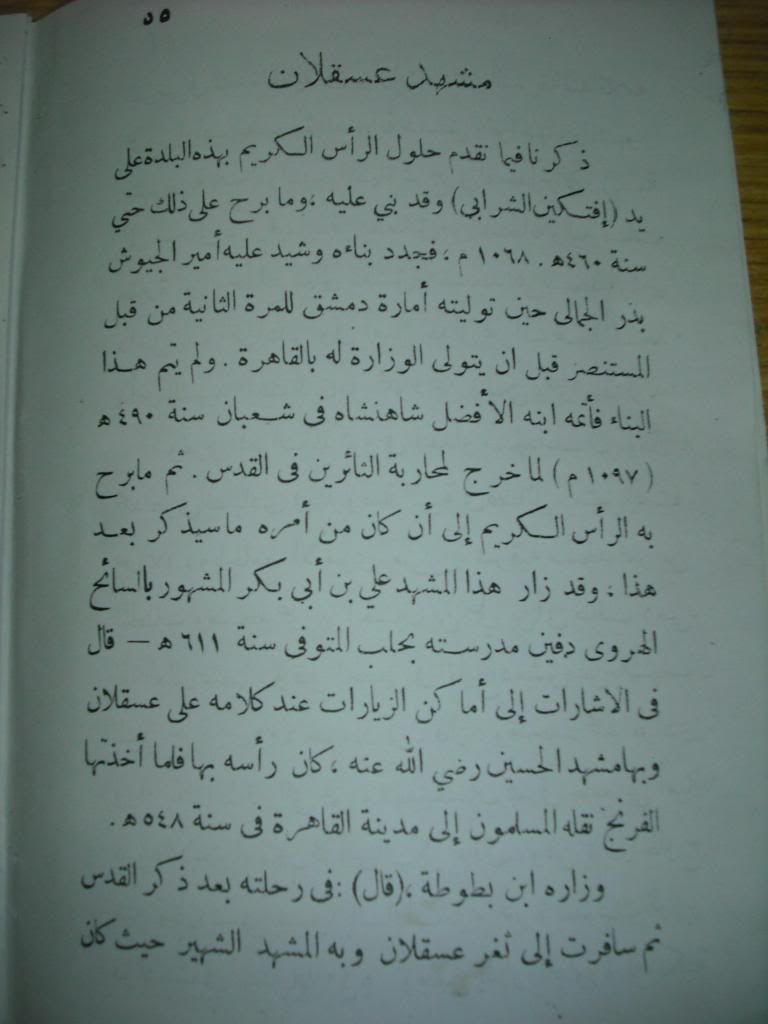 ٥٥
مشهد عسقلان
ذكرنا فيما تقدم حلول الرأس الكريم بهذه البلدة على
يد (إفتكين الشرابي) وقد بني عليه ، وما برح على ذلك حتي
سنة ٤٦٠ه . ١٠٦٨ م ، فجدد بناءه وشيد عليه أمير الجيوش
بدر الجمالى حين توليته أمارة دمشق للمرة الثانية من قبل
المستنصر قبل ان يتولى الوزارة له بالقاهرة . ولم يتم هذا
البناء فأتمه ابنه الأفضل شاهنشاه فى شعبان سنة ٤٩٠ ه
(١٠٩٧ م) لما خرج لمحاربة الثائرين فى القدس . ثم مابرح
به الرأس الكريم إلى أن كان من أمره ماسيذكر بعد
هذا ، وقد زار هذا المشهد علي بن أبي بكر المشهور بالسائح
الهروى دفين مدرسته بحلب المتوفى سنة ٦١١ ه — قال
فى الاشارات إلى أماكن الزيارات عند كلامه على عسقلان
وبها مشهد الحسين رضي الله عنه ، كان رأسه بها فلما أخذتها
الفرنج نقله المسلمون إلى مدينة القاهرة فى سنة ٥٤٨ ه .
وزاره ابن بطوطة ، (قال) : فى رحلته بعد ذكر القدس
ثم سافرت إلى ثغر عسقلان وبه المشهد الشهير حيث كان